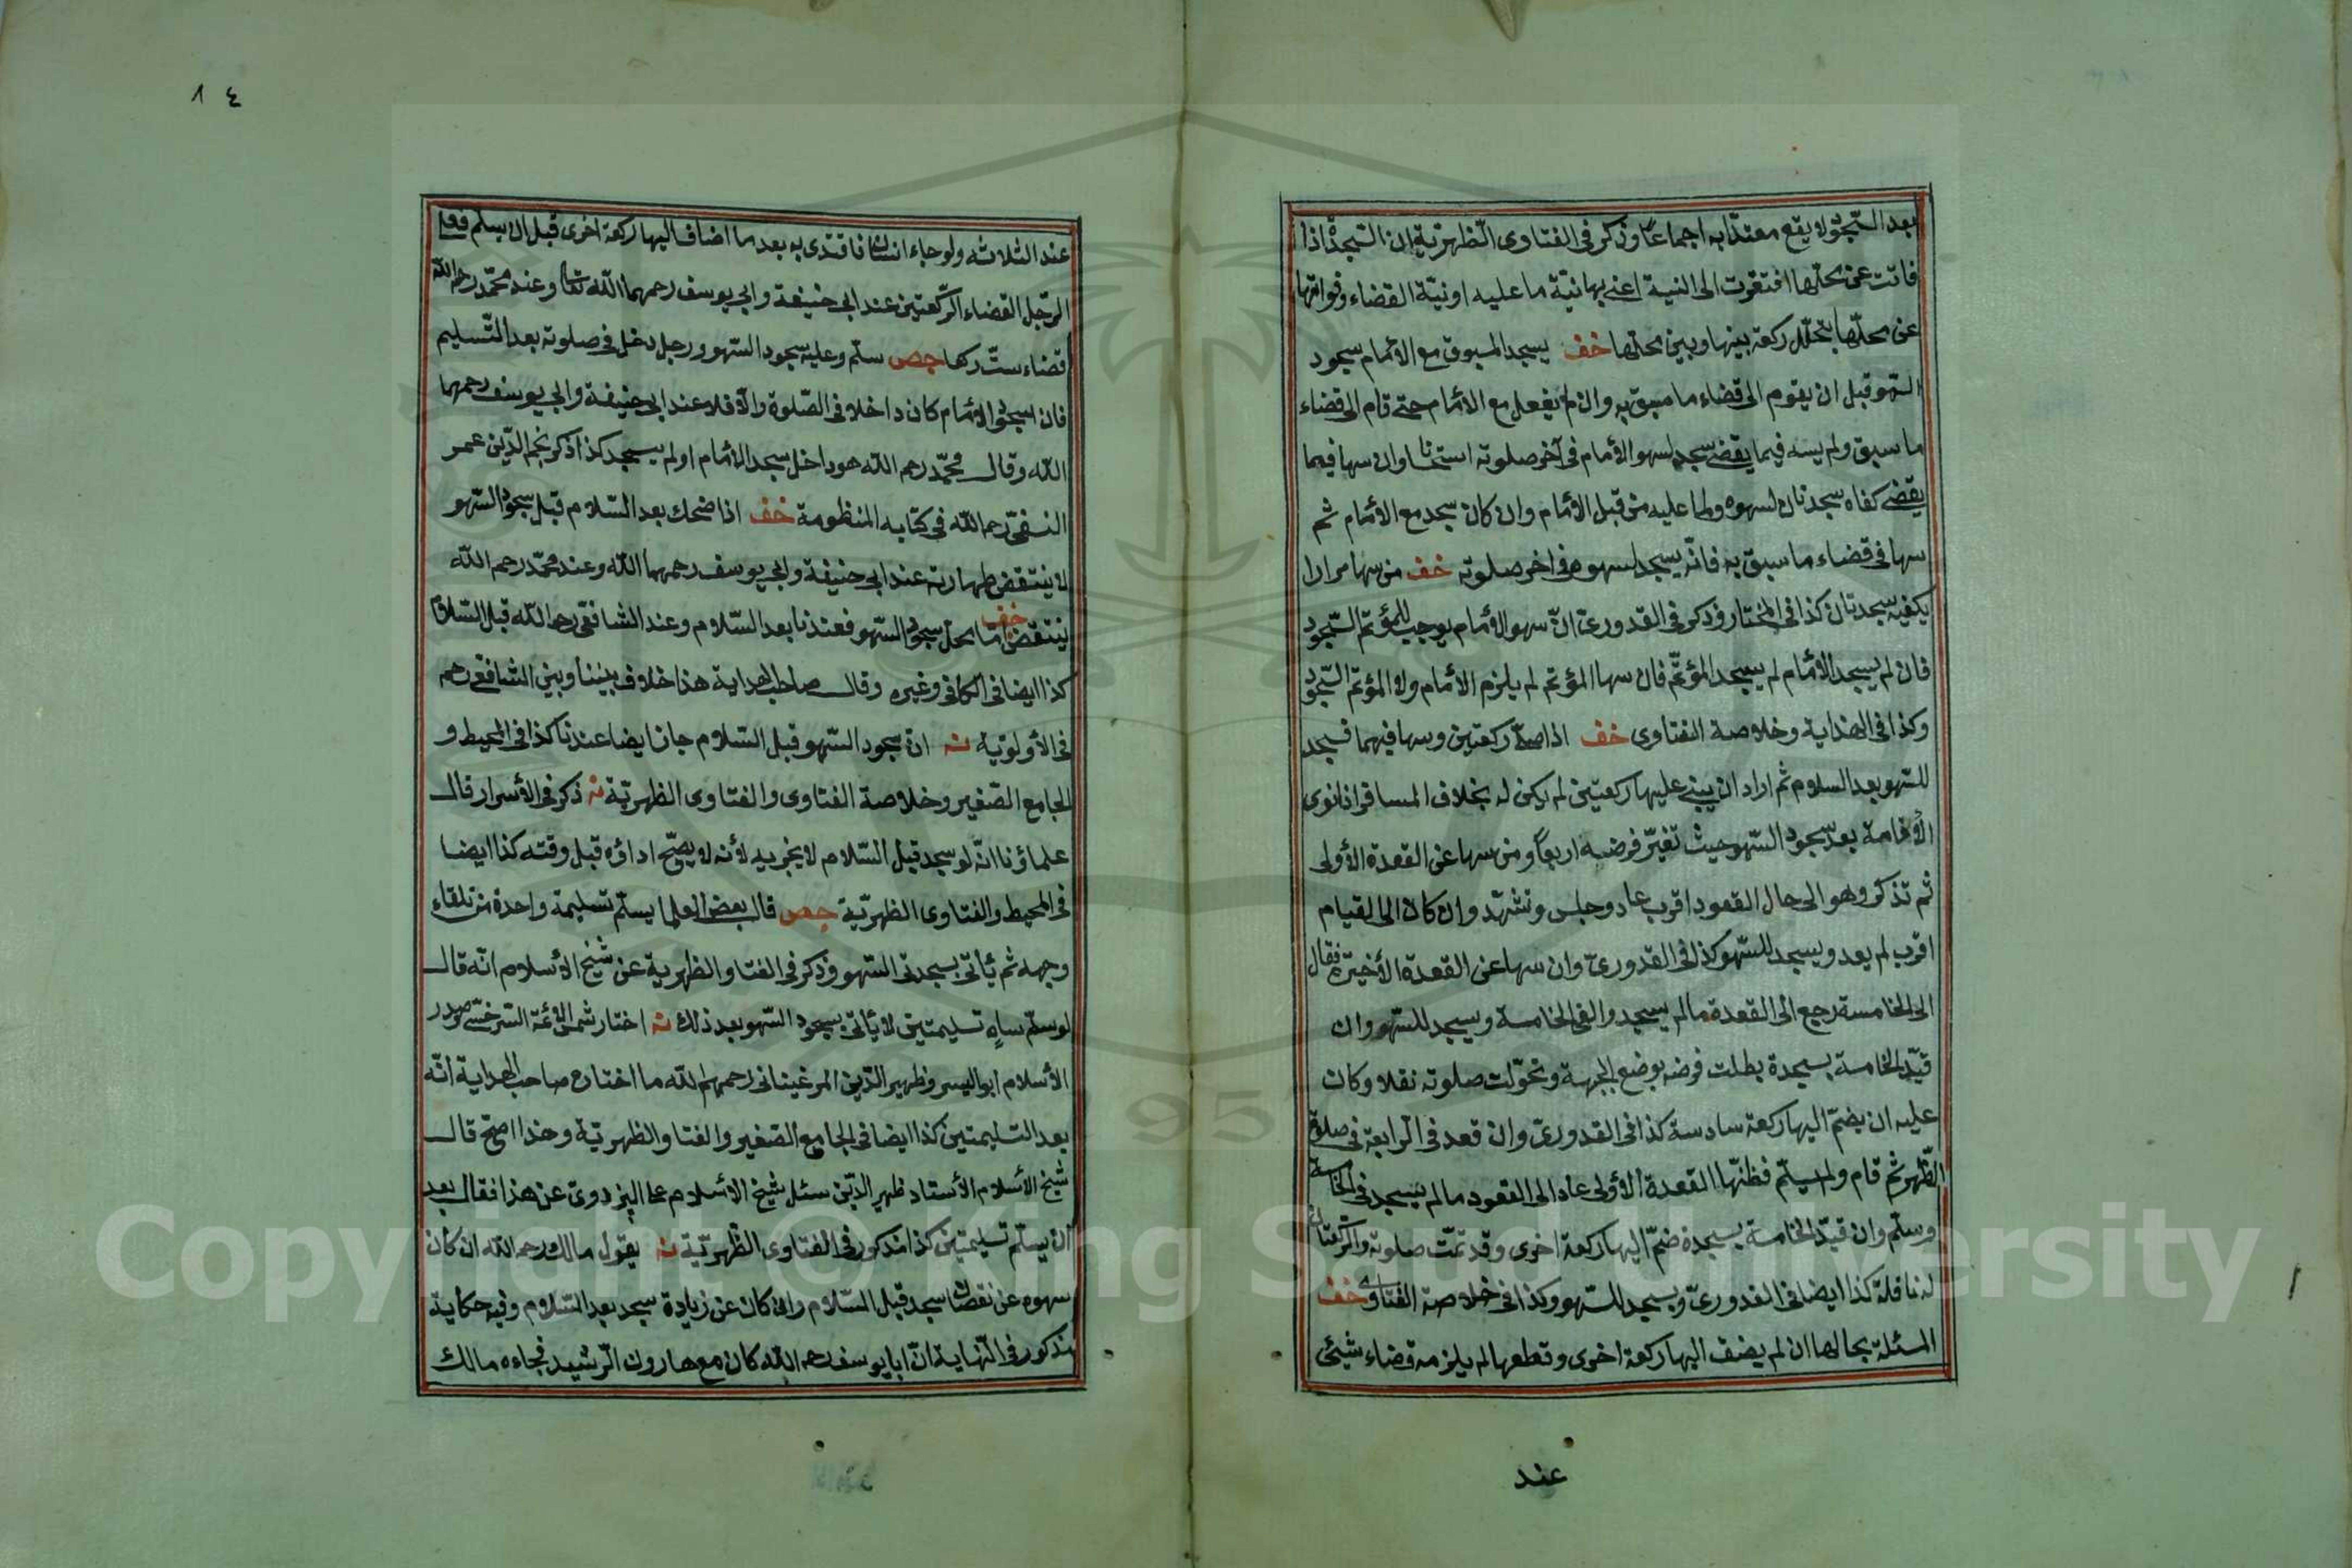 بعد السّجود لا يقع معتدّا به اجماعاً وذكر فى الفتاوى الظهيريّة ان السّجدة اذا
فاتت عن محلّها افتقرت الى النية اعنى بها نيّة ما عليه او نيّة القضاء وفواتها
عن محلّها بتخلّل ركعة بينها وبين محلّها خف يسجد المسبوق مع الامام سجود
السّهو قبل ان يقوم الى قضاء ما سبق به وان لم يفعل مع الامام حتى قام الى قضاء
ما سبق ولم يسه فيما يقضى سجد لسهو الامام فى آخر صلوته استحسانا وان سها فيما
يقضى كفاه سجدتان لسهوه ولما عليه من قبل الامام وان كان سجد مع الامام ثم
سها فى قضاء ما سبق به فانّه يسجد لسهوه فى اخر صلوته خف من سها مرارا
يكفيه سجدتان كذا فى المختار وذكر فى القدورىّ انّ سهو الامام يوجب المؤتمّ السّجود
فان لم يسجد الامام لم يسجد المؤتمّ فان سها المؤتمّ لم يلزم الامام ولا المؤتمّ السّجود
وكذا فى الهداية وخلاصة الفتاوى خف اذا صلّى ركعتين وسها فيهما فسجد
للسّهو بعد السلام ثم اراد ان يبنى عليها ركعتين لم يكن له بخلاف المسافر اذا نوى
الاقامة بعد سجود السّهو حيث تغيّر فرضه اربعاً ومن سها عن القعدة الأولى
ثم تذكر وهو الى حال القعود اقرب عاد وجلس وتشهّد وان كان الى القيام
اقرب لم يعد ويسجد للسّهو كذا فى القدورىّ وان سها عن القعدة الأخيرة فقال
الى الخامسة رجع الى القعدة ما لم يسجد والقى الخامسة ويسجد للسّهو وان
قيّد الخامسة بسجدة بطلت فرضه بوضع الجبهة وتحوّلت صلوته نفلا وكان
عليه ان يضمّ اليها ركعة سادسة كذا فى القدورىّ وان قعد فى الرّابعة فى صلوة
الظّهر ثم قام ولم يسلّم فظنّها القعدة الأولى عاد الى القعود ما لم يسجد فى الخامسة
وسلّم وان قيّد الخامسة بسجدة ضمّ اليها ركعة اخرى وقد تمّت صلوته والركعتان
له نافلة كذا ايضا فى القدورىّ ويسجد للسّهو وكذا فى خلاصة الفتاوى خف
المسئلة بحالها ان لم يضف اليها ركعة اخرى وقطعها لم يلزمه قضاء شيئى
عند
١٤
عند الثلاثه ولو جاء انسان فاقتدى به بعد ما اضاف اليها ركعة اخرى قبل ان يسلّم فعلى
الرّجل القضاء الرّكعتين عند ابى حنيفة وابى يوسف رحمهما اللّه تعالى وعند محمّد رحمه اللّه
قضاء ستّ ركعا جص سلّم وعليه سجود السّهو ورجل دخل فى صلوته بعد التّسليم
فان سجد الامام كان داخلا فى الصّلوة والّا فلا عند ابى حنيفة وابى يوسف رحمهما
اللّه وقال محمّد رحمه اللّه هو داخل سجد الامام او لم يسجد كذا ذكر نجم الدّين عمر
النسفىّ رحمه اللّه فى كتابه المنظومة خف اذا ضحك بعد السّلام قبل سجود السّهو
لا ينتقض طهارته عند ابى حنيفة وابى يوسف رحمهما اللّه وعند محمّد رحمه اللّه
ينتقض خف امّا محلّ سجود السّهو فعندنا بعد السّلام وعند الشافعىّ رحمه اللّه قبل السّلام
كذا ايضا فى الكافى وغيره وقال صاحب الهداية هذا خلاف بيننا وبين الشافعى رحمه
فى الأولويّة نه انّ سجود السّهو قبل السّلام جاز ايضا عندنا كذا فى المحيط و
الجامع الصّغير وخلاصة الفتاوى والفتاوى الظهيريّة نه ذكر فى الأسرار قال
علماؤنا انّه لو سجد قبل السّلام لا يجزيه لأنه لا يصحّ اداؤه قبل وقته كذا ايضا
فى المحيط والفتاوى الظهيريّة جص قال بعض العلما يسلّم تسليمة واحدة من تلقاء
وجهه ثم يأتى بسجدتى السّهو وذكر فى الفتاوى الظهيرية عن شيخ الاسلام انّه قال
لو سلّم ساهٍ تسليمتين لا يأتى بسجود السّهو بعد ذلك نه اختار شمس الائمّة السّرخسى وصدر
الأسلام ابو اليسر وظهير الدّين المرغينانى رحمهم اللّه ما اختاره صاحب الهداية انّه
بعد التسليمتين كذا ايضا فى الجامع الصّغير والفتاوى الظهيريّة وهذا اصحّ قال
شيخ الأسلام الأستاد ظهير الدّين سئل شيخ الاسلام على البزدوىّ عن هذا فقال بعد
ان يسلّم تسليمتين كذا مذكور فى الفتاوى الظّهيريّة نه يقول مالك رحمه اللّه ان كان
سهوه عن نقصان سجد قبل السّلام وان كان عن زيادة سجد بعد السّلام وفيه حكاية
مذكور فى النّهاية انّ ابا يوسف رحمه اللّه كان مع هارون الرّشيد فجاءه مالك
Copyright © King Saud University